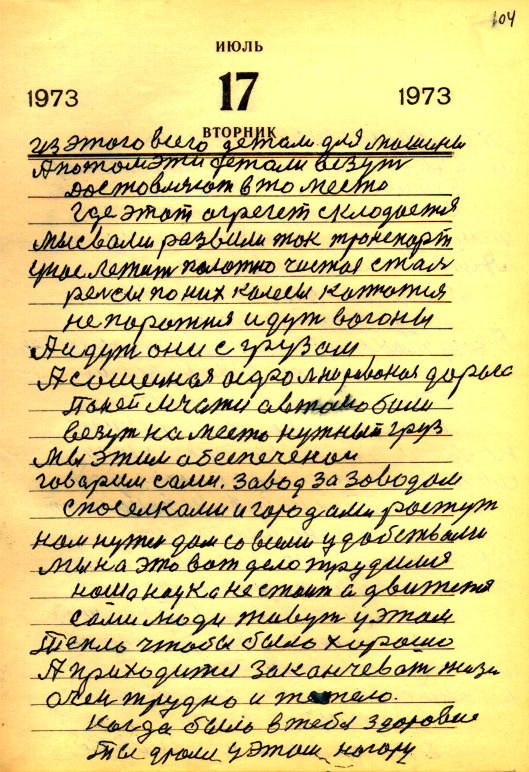 104
ИЮЛЬ
1973 17 1973
ВТОРНИК
из этого всего детали для машины
А потом эти детали везут
доставляют в то место
Где этот агрегет склодается
мы свами развили ток транспорт
унас лежит полотно чистоя стал
релсы по них колесы котются
не порожня идут вогоны
Аидут они с грузом
А сошейная асфолтированоя дорога
Поней мчатся автомобили
везут на место нужный груз
мы этим обеспечении
говарим сами. завод за заводом
споселками и городами ростут
нам нужен дом со всеми удобствами
мы на это вот дело трудился
ношанаука не стоит а движется
сами люди живут уэтом
Тепло чтобы было хорошо
А приходится заканчеват жизн
очен трудно и тежело.
когда было втебя здоровие
Ты уэтом